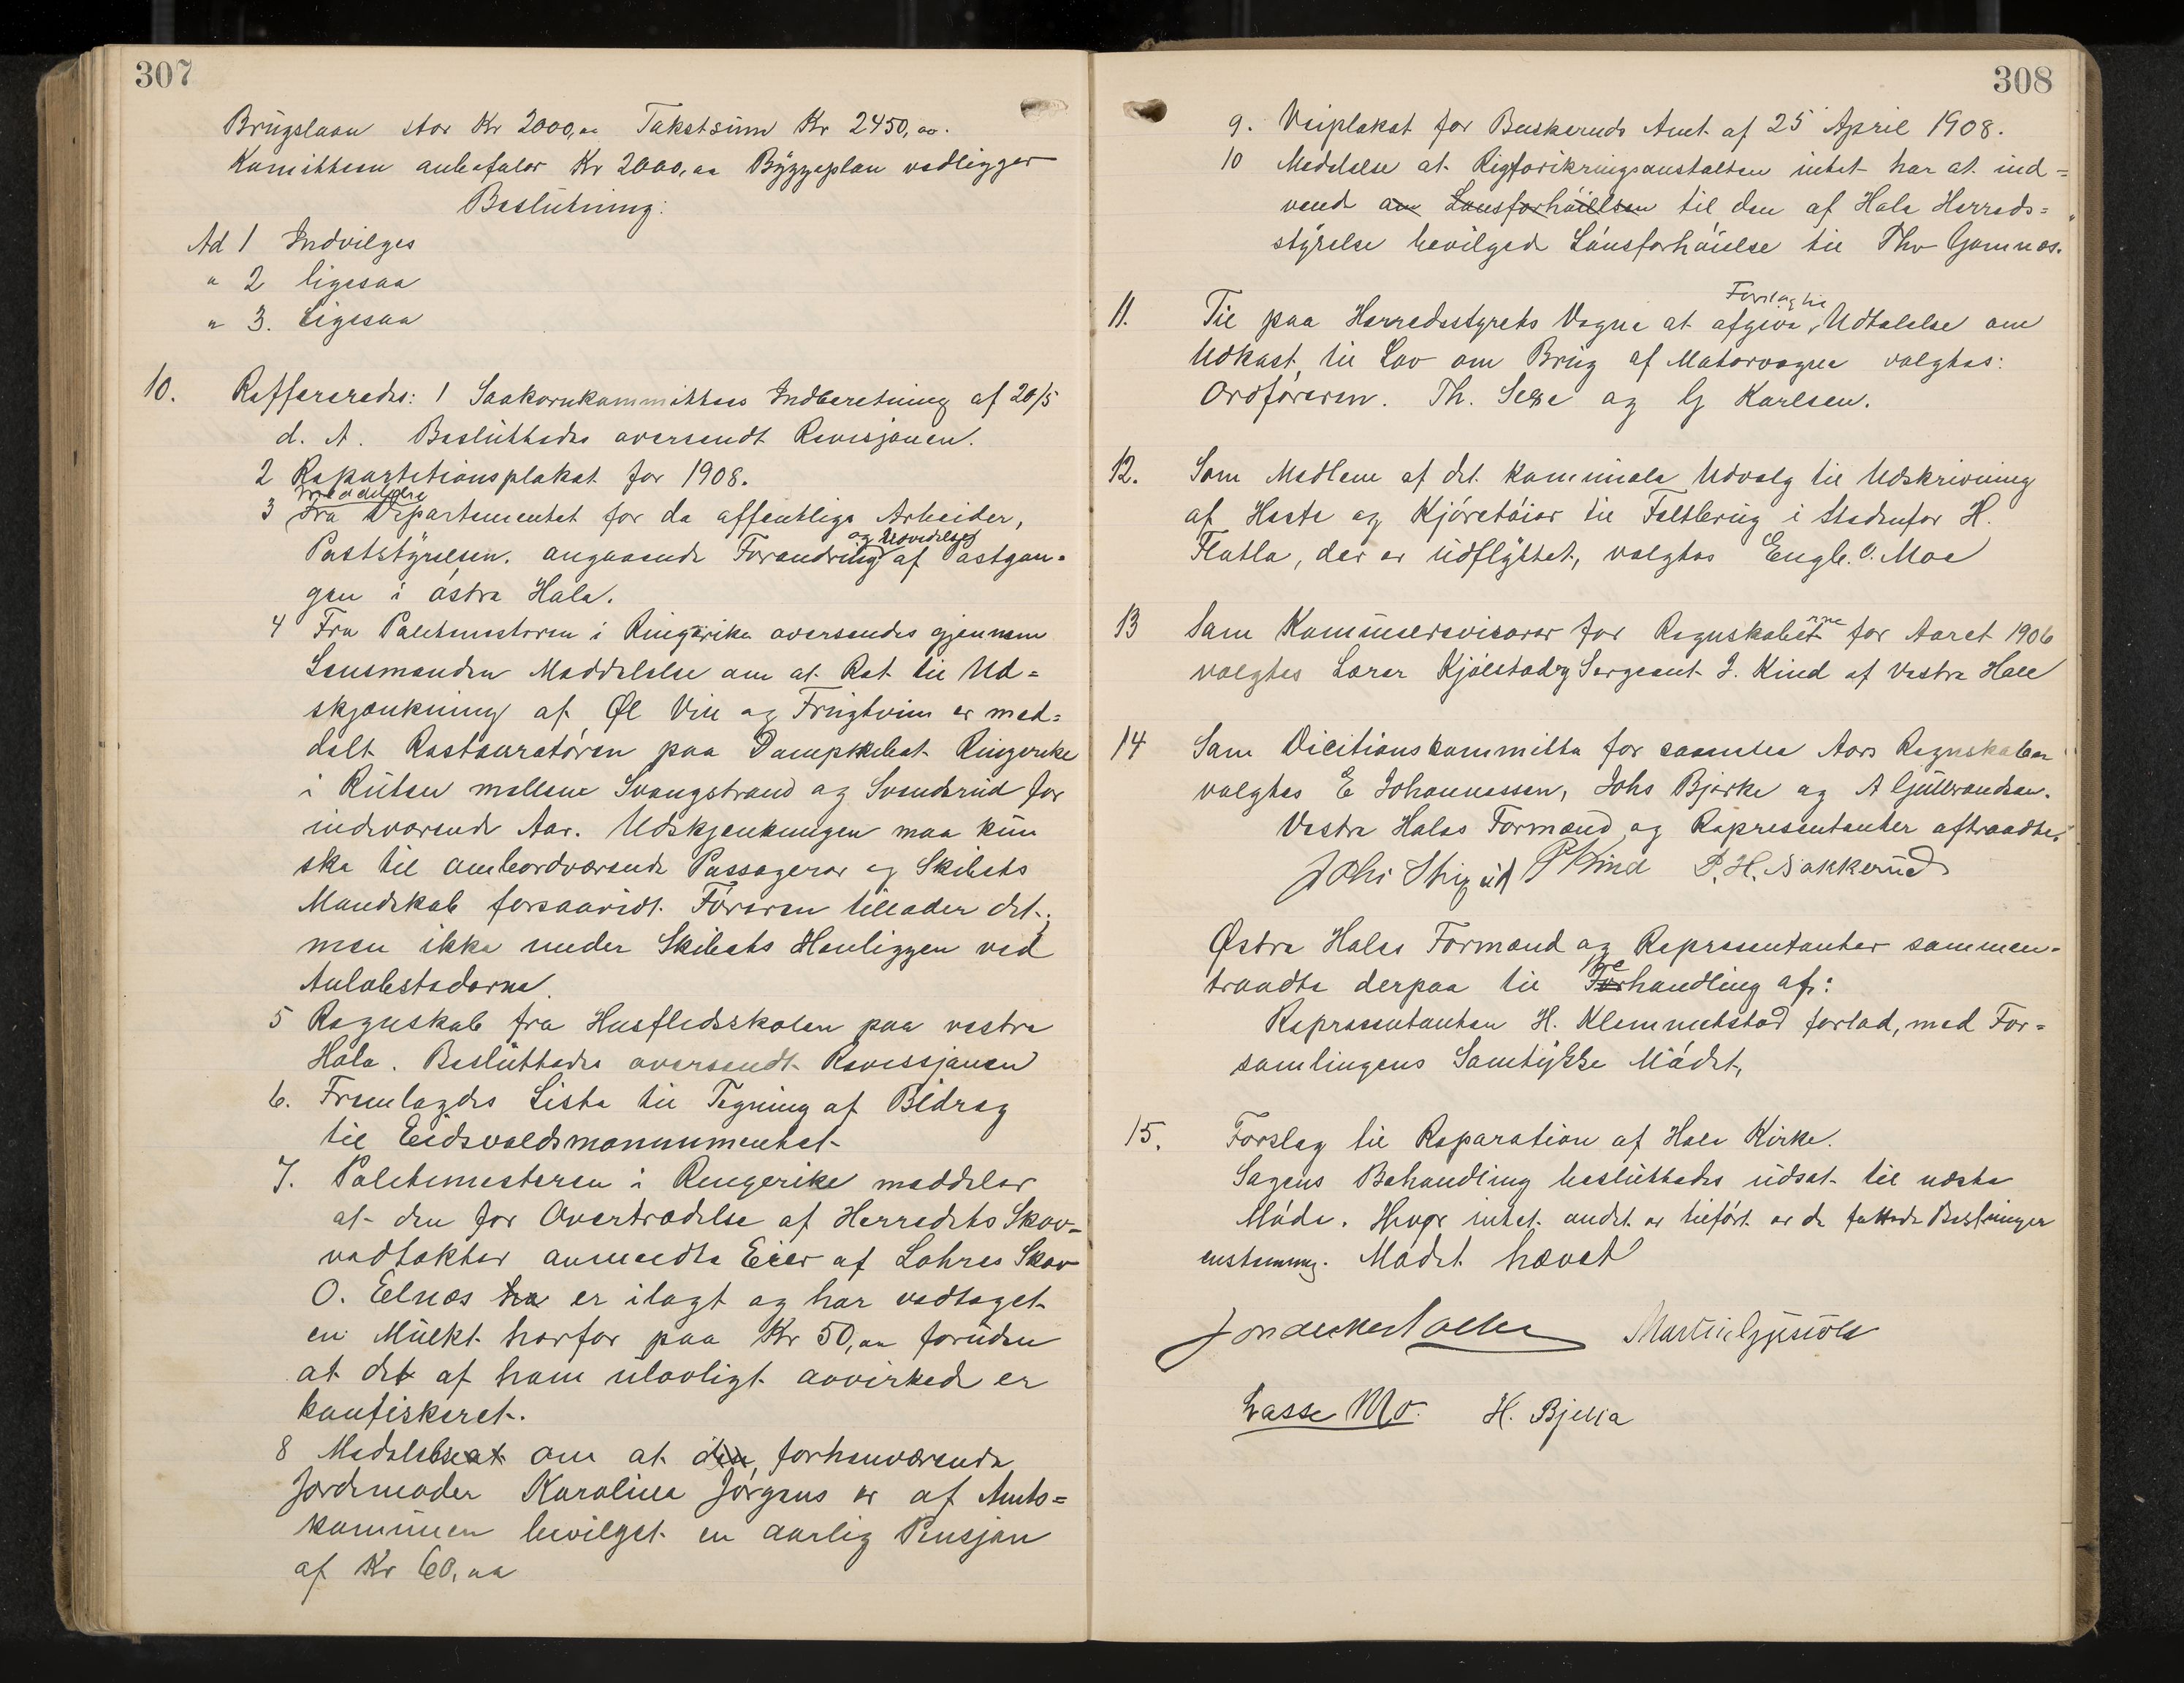 307
Brugslaan stor Kr 2000,00 Takstsum Kr 2450,00.
Komitteen anbefaler Kr 2000,00 Byggeplan vedligger
Beslutning:
Ad 1 Indvilges
" 2 ligesaa
" 3. Ligesaa
10. Reffereredes: 1 Saakornkommitteens Indberetning af 20/5
d. A. Besluttedes oversendt Revisjonen.
2 Repartitionsplakat for 1908.
Meddelelse
3 fra Departementet for de offentlige Arbeider,
og Udvidelse
Poststyrelsen. angaaende Forandring af Postgan-
gen i østre Hole.
4 Fra Politimesteren i Ringerike oversendes gjennem
Lensmanden Meddelelse om at Ret til Ud=
skjænkning af Øl Vin og Frugtvin er med=
delt Restauratøren paa Dampskibet Ringerike
i Ruten mellem Svangstrand og Svendsrud for
indeværende Aar. Udskjenkningen maa kun
ske til ombordværende Passagerer og Skibets
Mandskab forsaavidt Føreren tillader det;
men ikke under Skibets Henliggen ved
Anløbstederne.
5 Regnskab fra Husflidsskolen paa vestre
Hole. Besluttedes oversendt Revissjonen
6. Fremlagdes Liste til Tegning af Bidrag
til Eidsvoldsmonnumentet
7. Politimesteren i Ringerike meddeler
at den for Overtrædelse af Herredets Skov=
vedtekter anmeldte Eier af Lohres Skov
O. Elnæs ha er ilagt og har vedtaget
en Mulkt herfor paa Kr 50,00 foruden
at det af ham ulovligt avvirkede er
konfiskeret.
8 Medelelse at om at den forhenværende
Jordemoder Karoline Jørgens er af Amts=
kommunen bevilget en aarlig Pensjon
af Kr 60,00
308
9. Veiplakat for Buskeruds Amt af 25 April 1908.
10 Meddelse at Rigforsikringsanstalten intet har at ind=
vend om Lønsforhøielsen til den af Hole Herreds=
styrelse bevilged Lønsforhøielse til Thv Gomnæs.
Forslag til
11. Til paa Herredsstyrets Vegne at afgive Udtalelse om
Udkast til Lov om Brug af Motorvogne valgtes:
Ordføreren. Th. Selte og G Karlsen.
12. Som Medlem af det kommunale Udvalg til Udskrivning
af Heste og Kjøretøier til Feltbrug i Stedenfor H.
Flatla, der er udflyttet, valgtes Engb. O. Moe
13 Som Kommunerevisorer for Regnskabet erne for Aaret 1906
valgtes Lærer Kjølstad og Sergeant J. Kind af Vestre Hole
14 Som Dicitionskommitte for samtes Aars Regnskaber
valgtes E Johannessen, Johs Bjørke og A Gulbrandsen.
Vestre Holes Formænd og Repræsentanter aftraadte.
P Kind P. H. Bakkerud
Østre Holes Formænd og Repræsentanter sammen-
Be
traadte derpaa til Forhandling af:
Repræsentanten H. Klemmetstad forlod, med For=
samlingens Samtykke Mødet,
15. Forslag til Reparation af Hole Kirke.
Sagens Behandling besluttedes udsat til næste
Møde. Hvor intet andet er tilført er de fattede Beslutninger
enstemmig. Mødet hævet
Lasse Mo. H. Bjelia